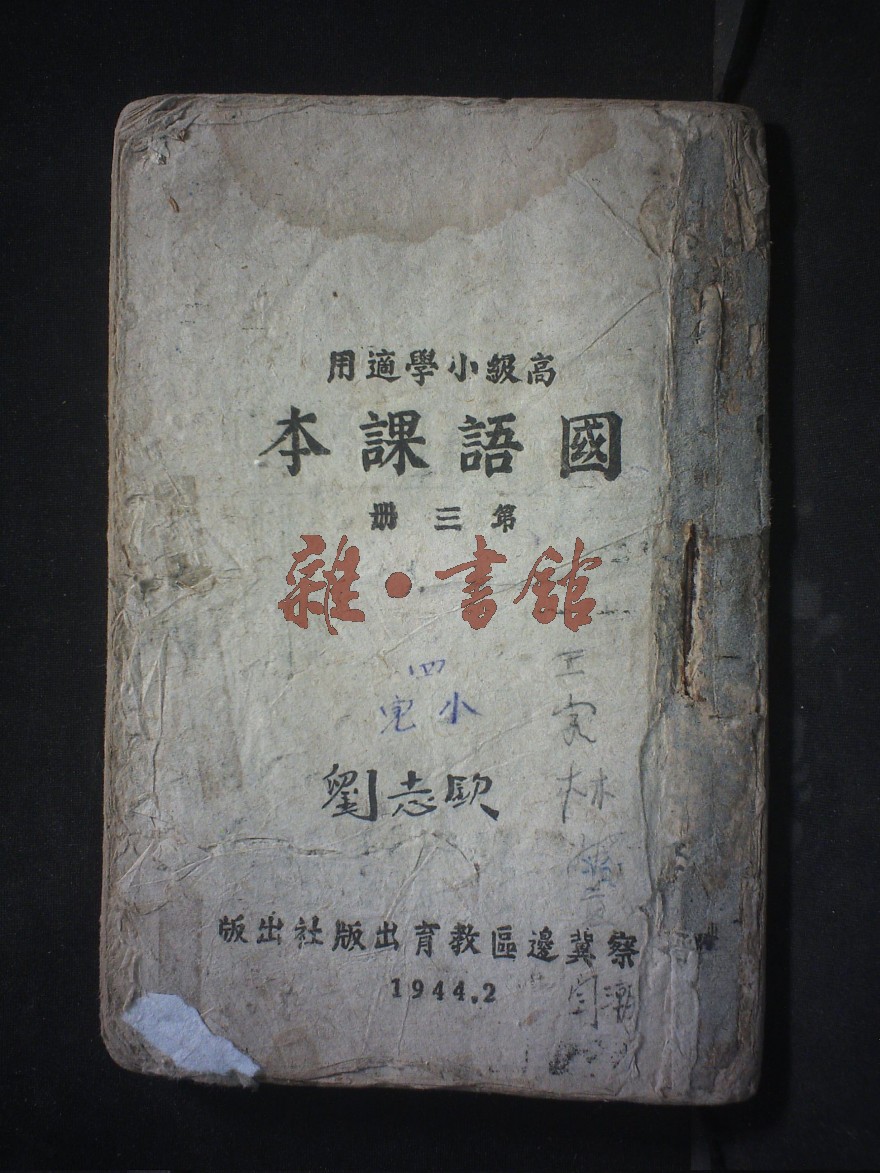 高級小學適用
國語課本
第三冊
雜·書館
四
小
劉志欧
王家林
晉察冀邊區教育出版社出版
1944.2